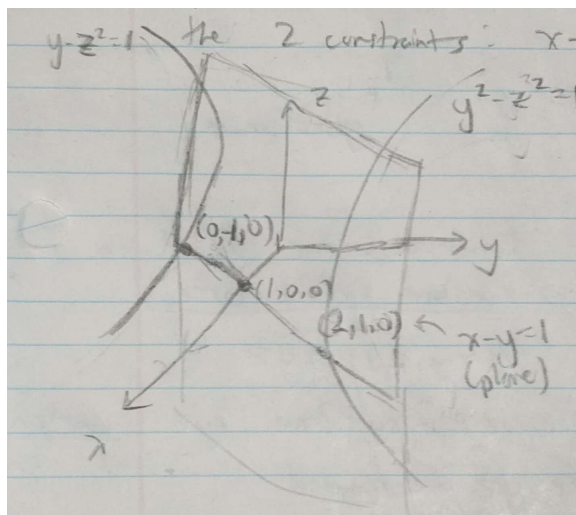 the 2 constraints: x-
y-z²=1
y²-z²=1
z
(0,-1,0)
y
(1,0,0)
(2,1,0) ← x-y=1
(plane)
x